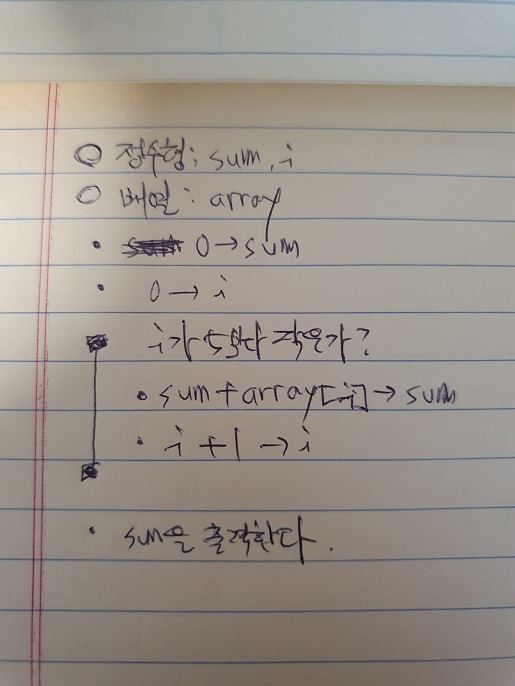 ○ 정수형: sum, i
○ 배열: array
• 0→sum
• 0→i
■ i가 5보다 작은가?
• sum+array[i]→sum
• i+1→i
■
• sum을 출력한다.